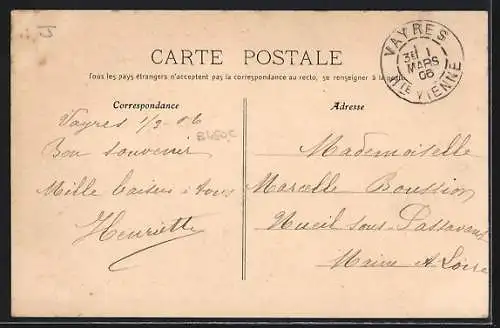 J
VAYRES
3E 1
MARS
06
HTE VIENNE
CARTE POSTALE
Tous les pays étrangers n'acceptent pas la correspondance au recto, se renseigner à la poste
Correspondance
Adresse
Vayres 1/3-06
B460C
Bon souvenir
Mille baisers à tous
Henriette
Mademoiselle
Marcelle Boussion
Nueil sous Passavant
Maine et Loire